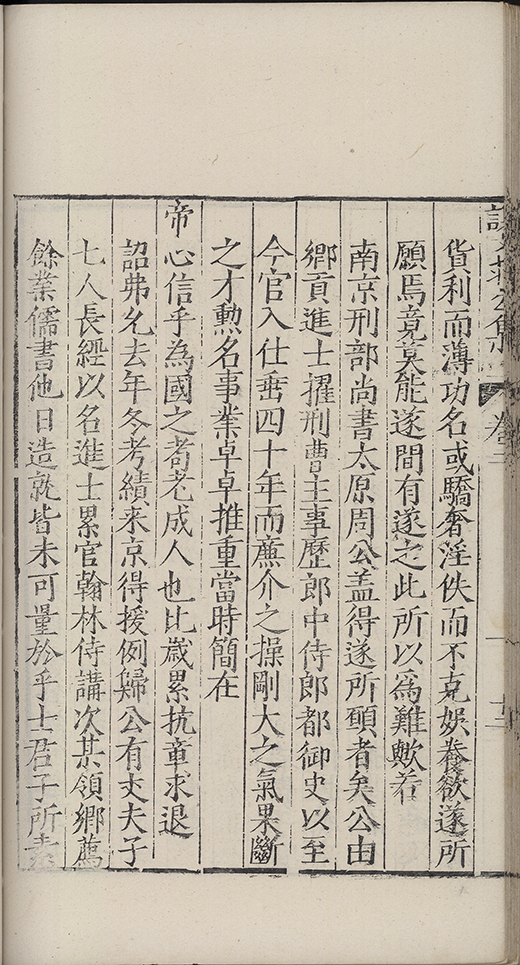 貨利而薄功名或驕奢淫佚而不克娛養欲遂所
願焉竟莫能遂間有遂之此所以為難歟若
南京刑部尚書太原周公盖得遂所願者矣公由
鄉貢進士擢刑曹主事歷郎中侍郎都御史以至
今官入仕垂四十年而廉介之操剛大之氣果斷
之才勲名事業卓卓推重當時簡在
帝心信乎為國之耇老成人也比歲累抗章求退
詔弗允去年冬考績来京得援例歸公有丈夫子
七人長經以名進士累官翰林侍講次某領鄉薦
餘業儒書他日造就皆未可量於乎士君子所